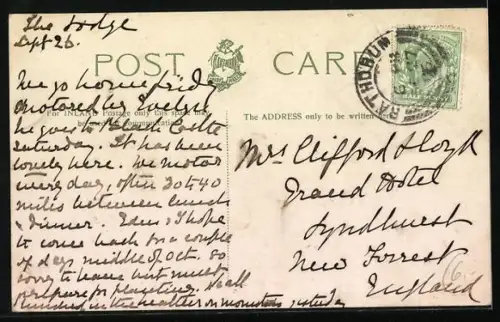 The Lodge
Sept 26.
POST CARD
We go home friday
motored by Evelyn
he goes to Black Castle
Saturday. It has been
lovely here. We motor
every day, often 30 to 40
miles between lunch
& dinner. Edu & I hope
to come back for a couple
of days middle of Oct. So
sorry to leave but must
prepare for planting. We all
in the heather on mountain yesterday
For INLAND Postage only this space may
be used for communication.
The ADDRESS only to be written
RATHDRUM
Mrs Clifford Lloyd
Grand Hotel
Lyndhurst
New Forrest
England